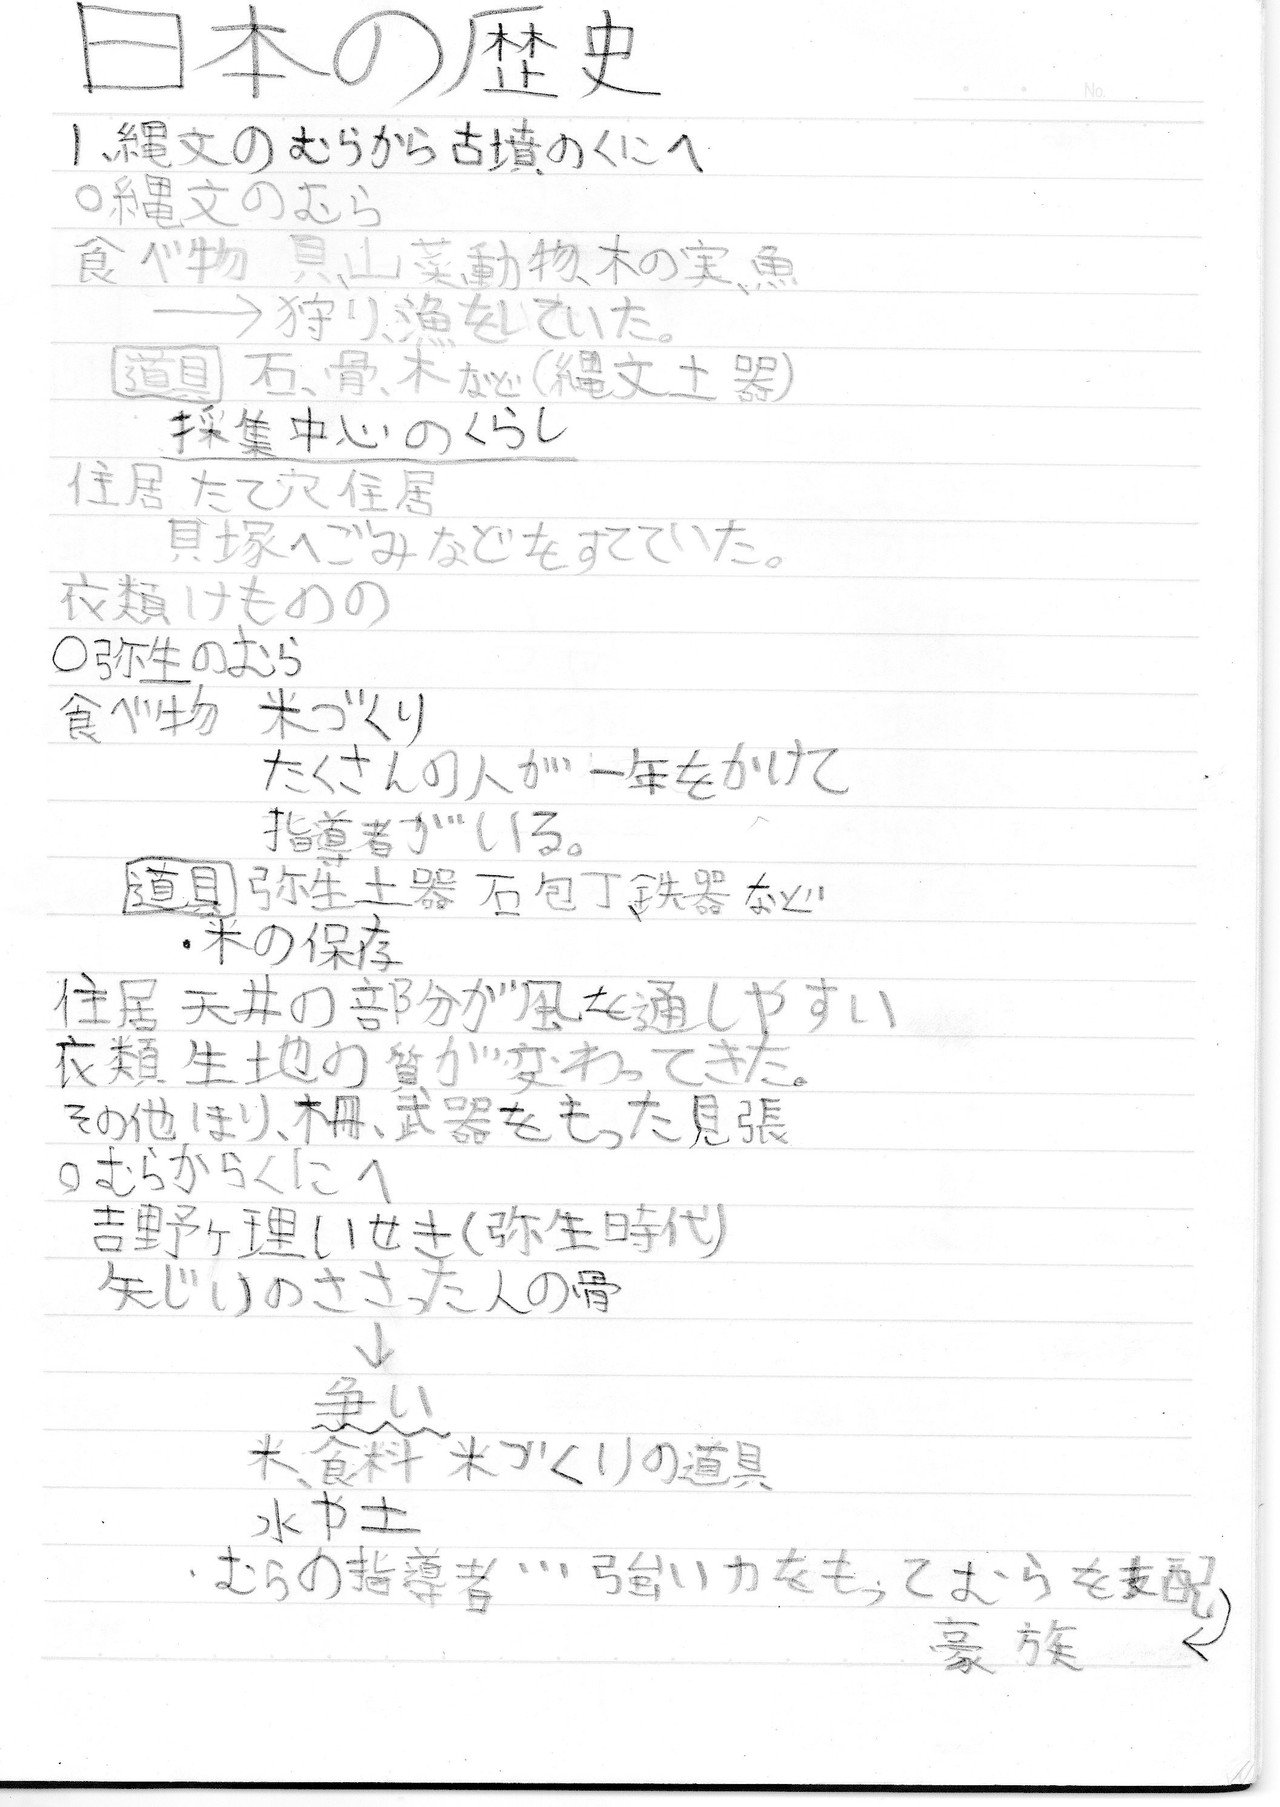 日本の歴史
No.
1、縄文のむらから古墳のくにへ
○縄文のむら
食べ物 貝、山菜、動物、木の実、魚
→狩り、漁をしていた。
道具 石、骨、木など(縄文土器)
採集中心のくらし
住居 たて穴住居
貝塚へごみなどもすてていた。
衣類 けものの
○弥生のむら
食べ物 米づくり
たくさんの人が一年をかけて
指導者がいる。
道具 弥生土器 石包丁 鉄器 など
・米の保存
住居 天井の部分が風を通しやすい
衣類 生地の質が変わってきた。
その他 ほり、柵、武器をもった見張
○むらからくにへ
吉野ヶ理いせき(弥生時代)
矢じりのささった人の骨
↓
争い
米、食料 米づくりの道具
水や土
・むらの指導者…強い力をもってむらを支配
豪族